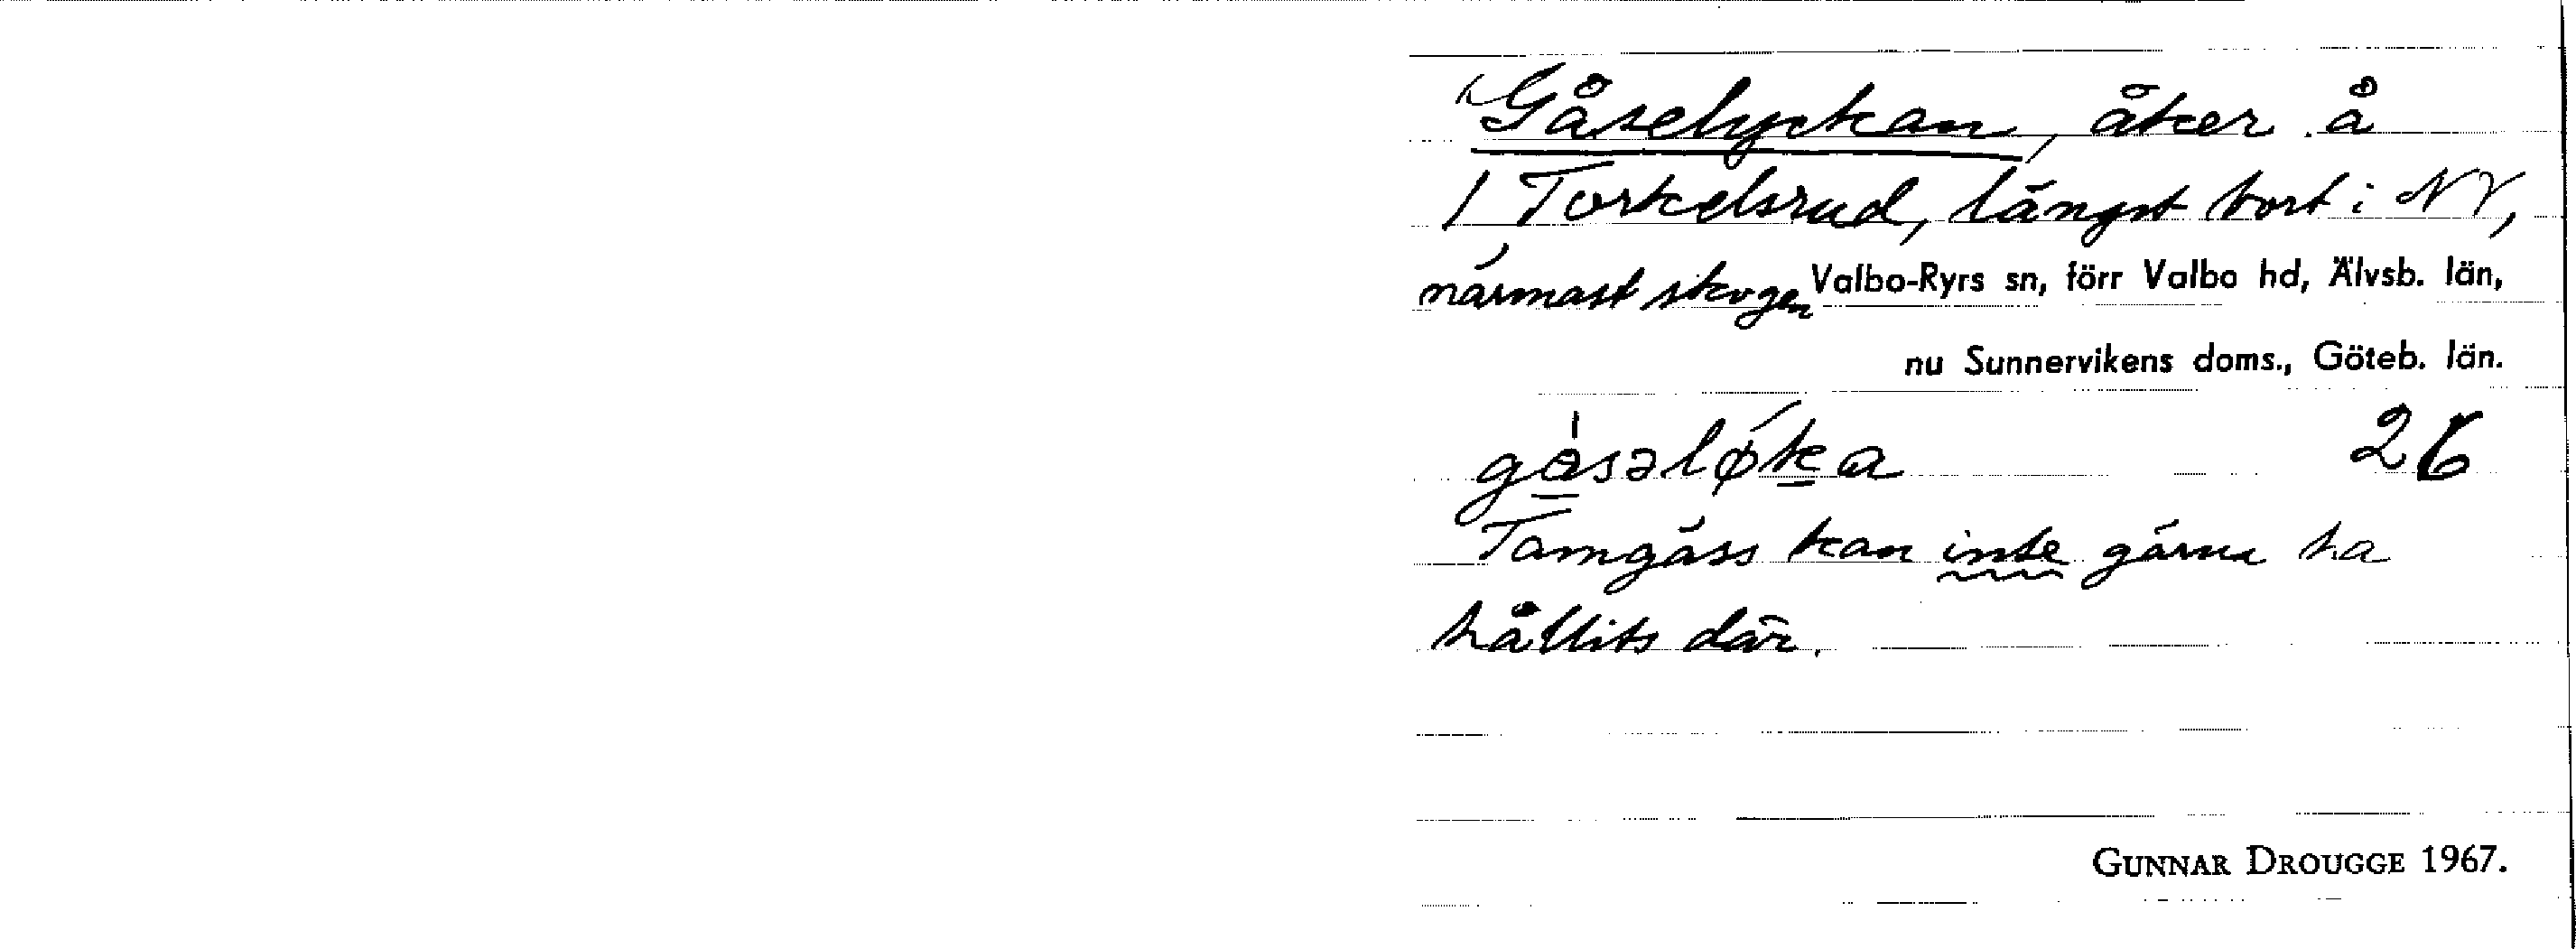 Gåselyckan, åker å
1 Torkelsrud, längst bort i NV,
närmast skogen Valbo-Ryrs sn, förr Valbo hd, Älvsb. län,
nu Sunnervikens doms., Göteb. län.
gåsəløka 26
Tamgäss kan inte gärna ha
hållits där.
GUNNAR DROUGGE 1967.